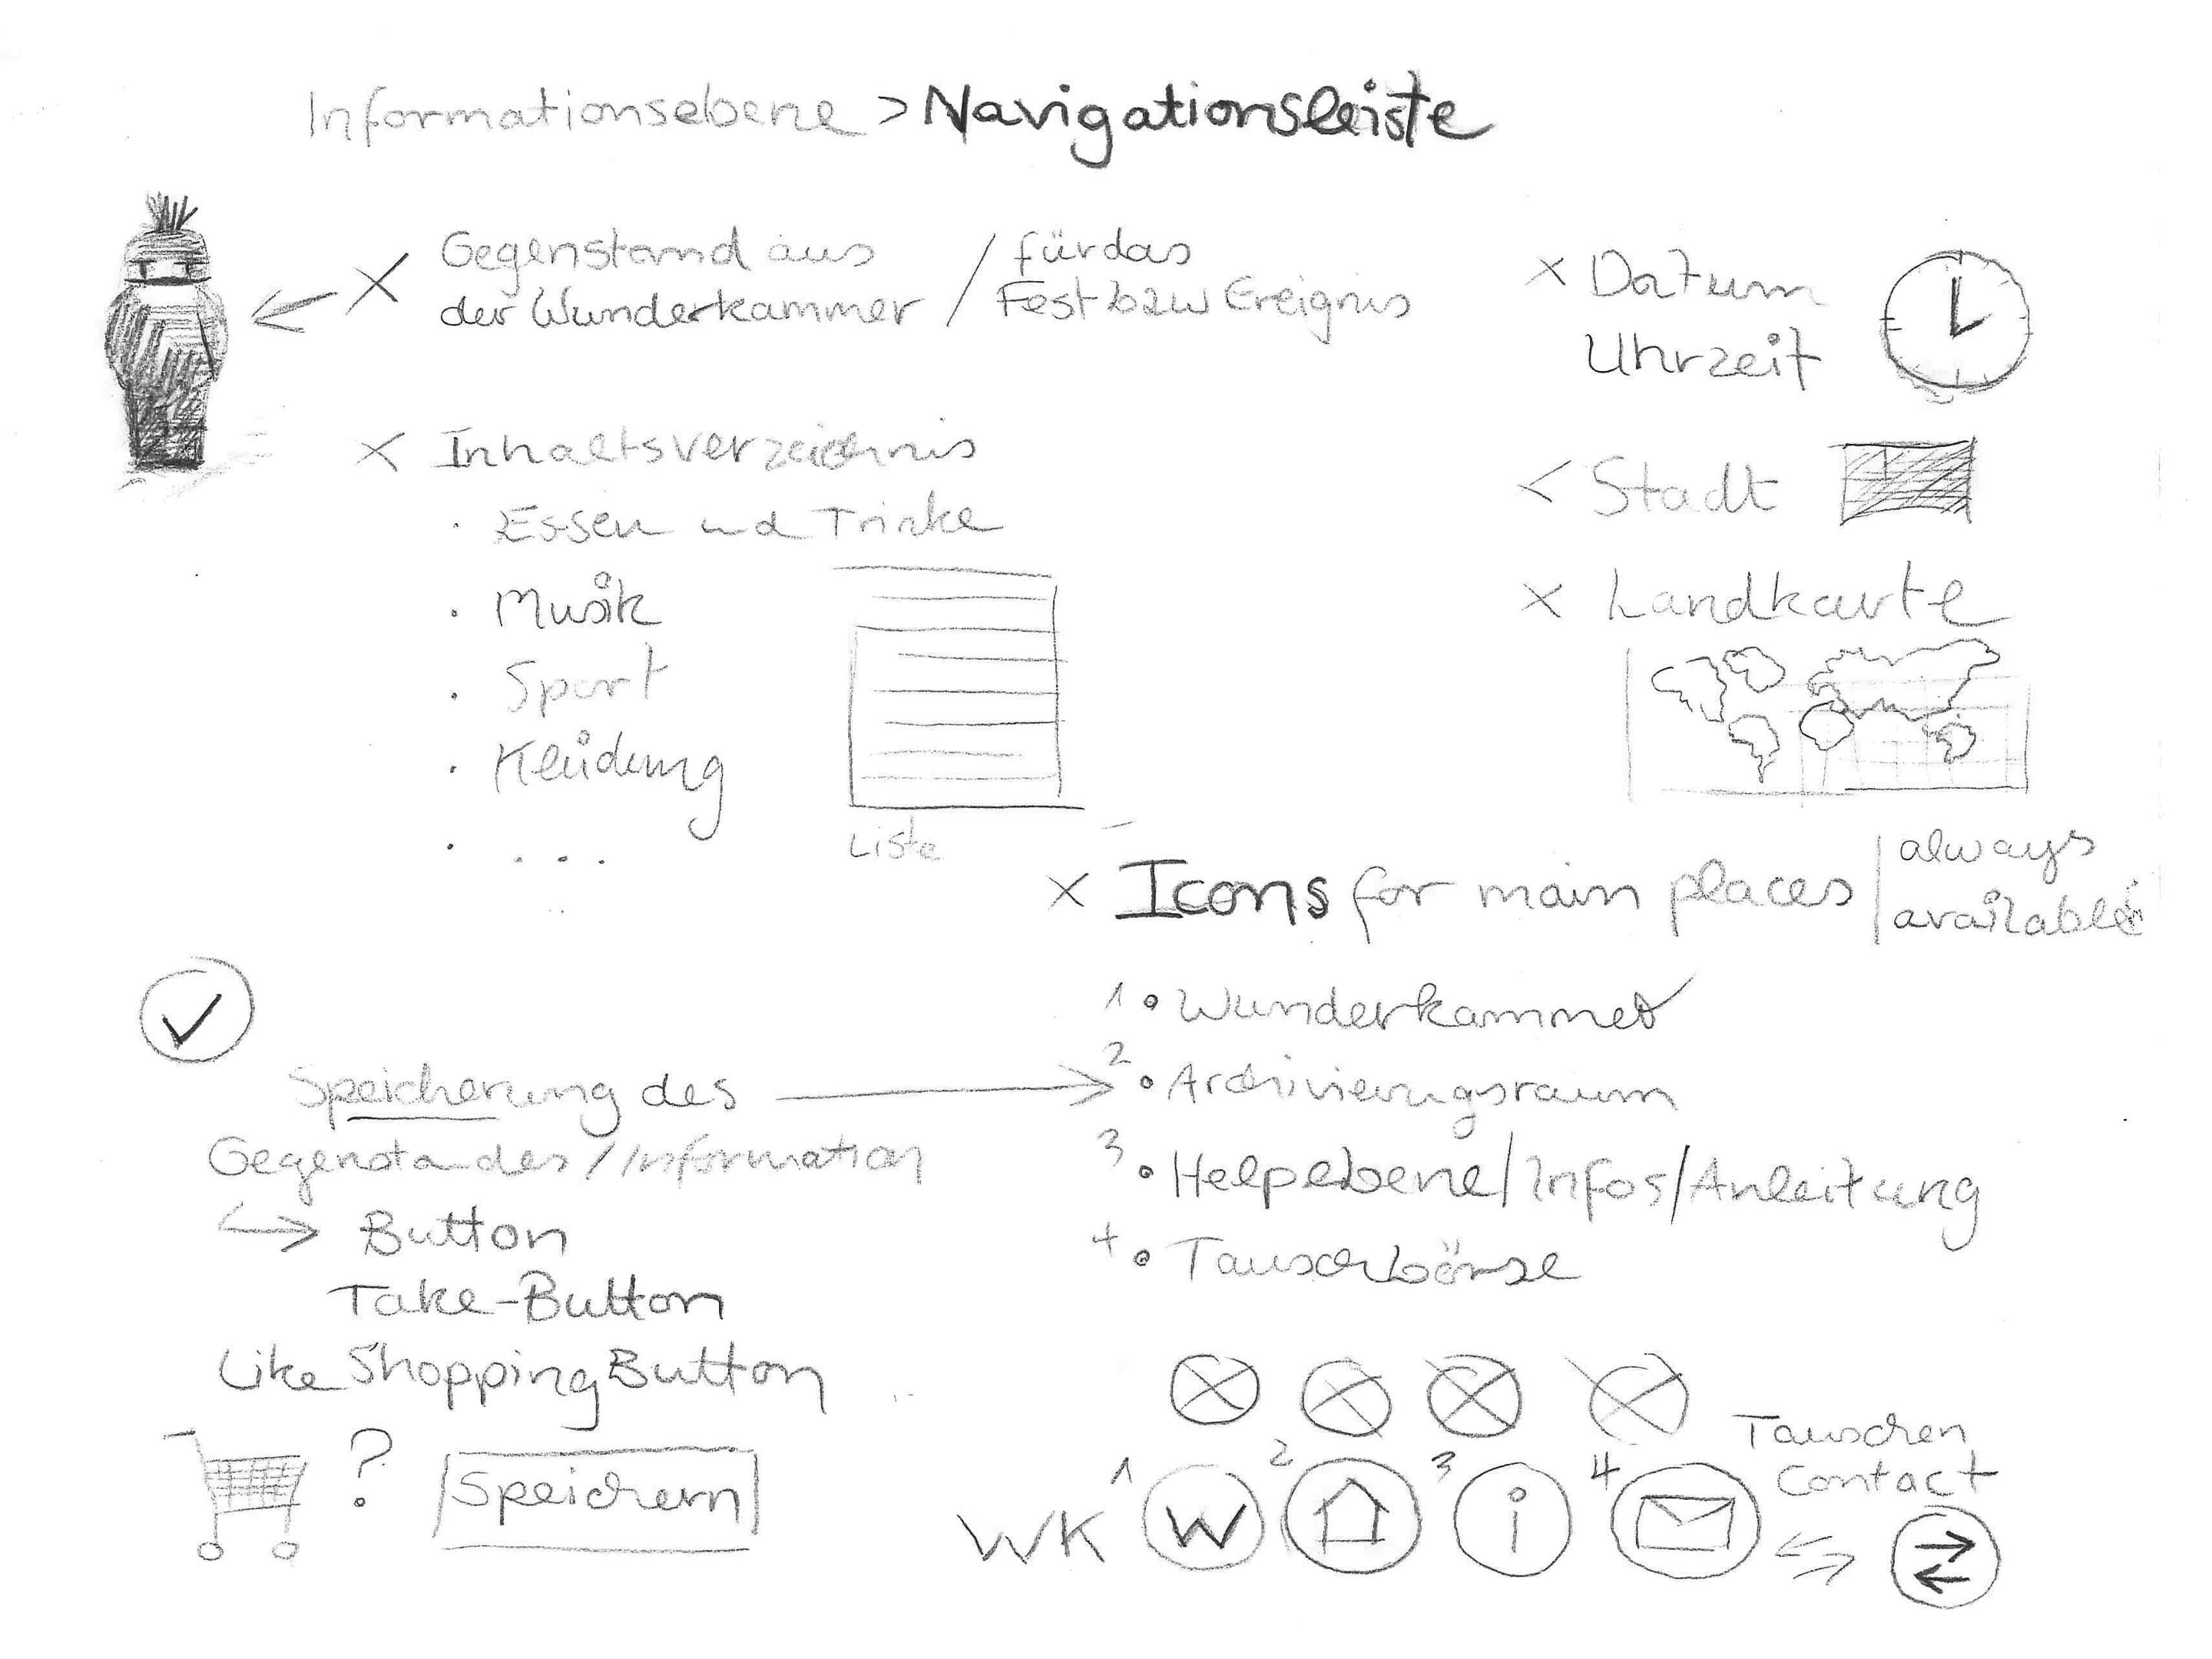 Informationsebene > Navigationsleiste
x Gegenstand aus / für das
der Wunderkammer / Fest bzw Ereignis
x Inhaltsverzeichnis
· Essen und Trinke
· Musik
· Sport
· Kleidung
· ...
Liste
x Datum
Uhrzeit
x Stadt
x Landkarte
x Icons for main places | always
available
1 • Wunderkammer
2 • Archivierungsraum
3 • Helpebene/Infos/Anleitung
4 • Tauschbörse
✓
Speicherung des →
Gegenstandes/Information
↪ Button
Take-Button
Like Shopping Button
? Speichern
Tauschen
Contact
WK 1 W 2 3 i 4